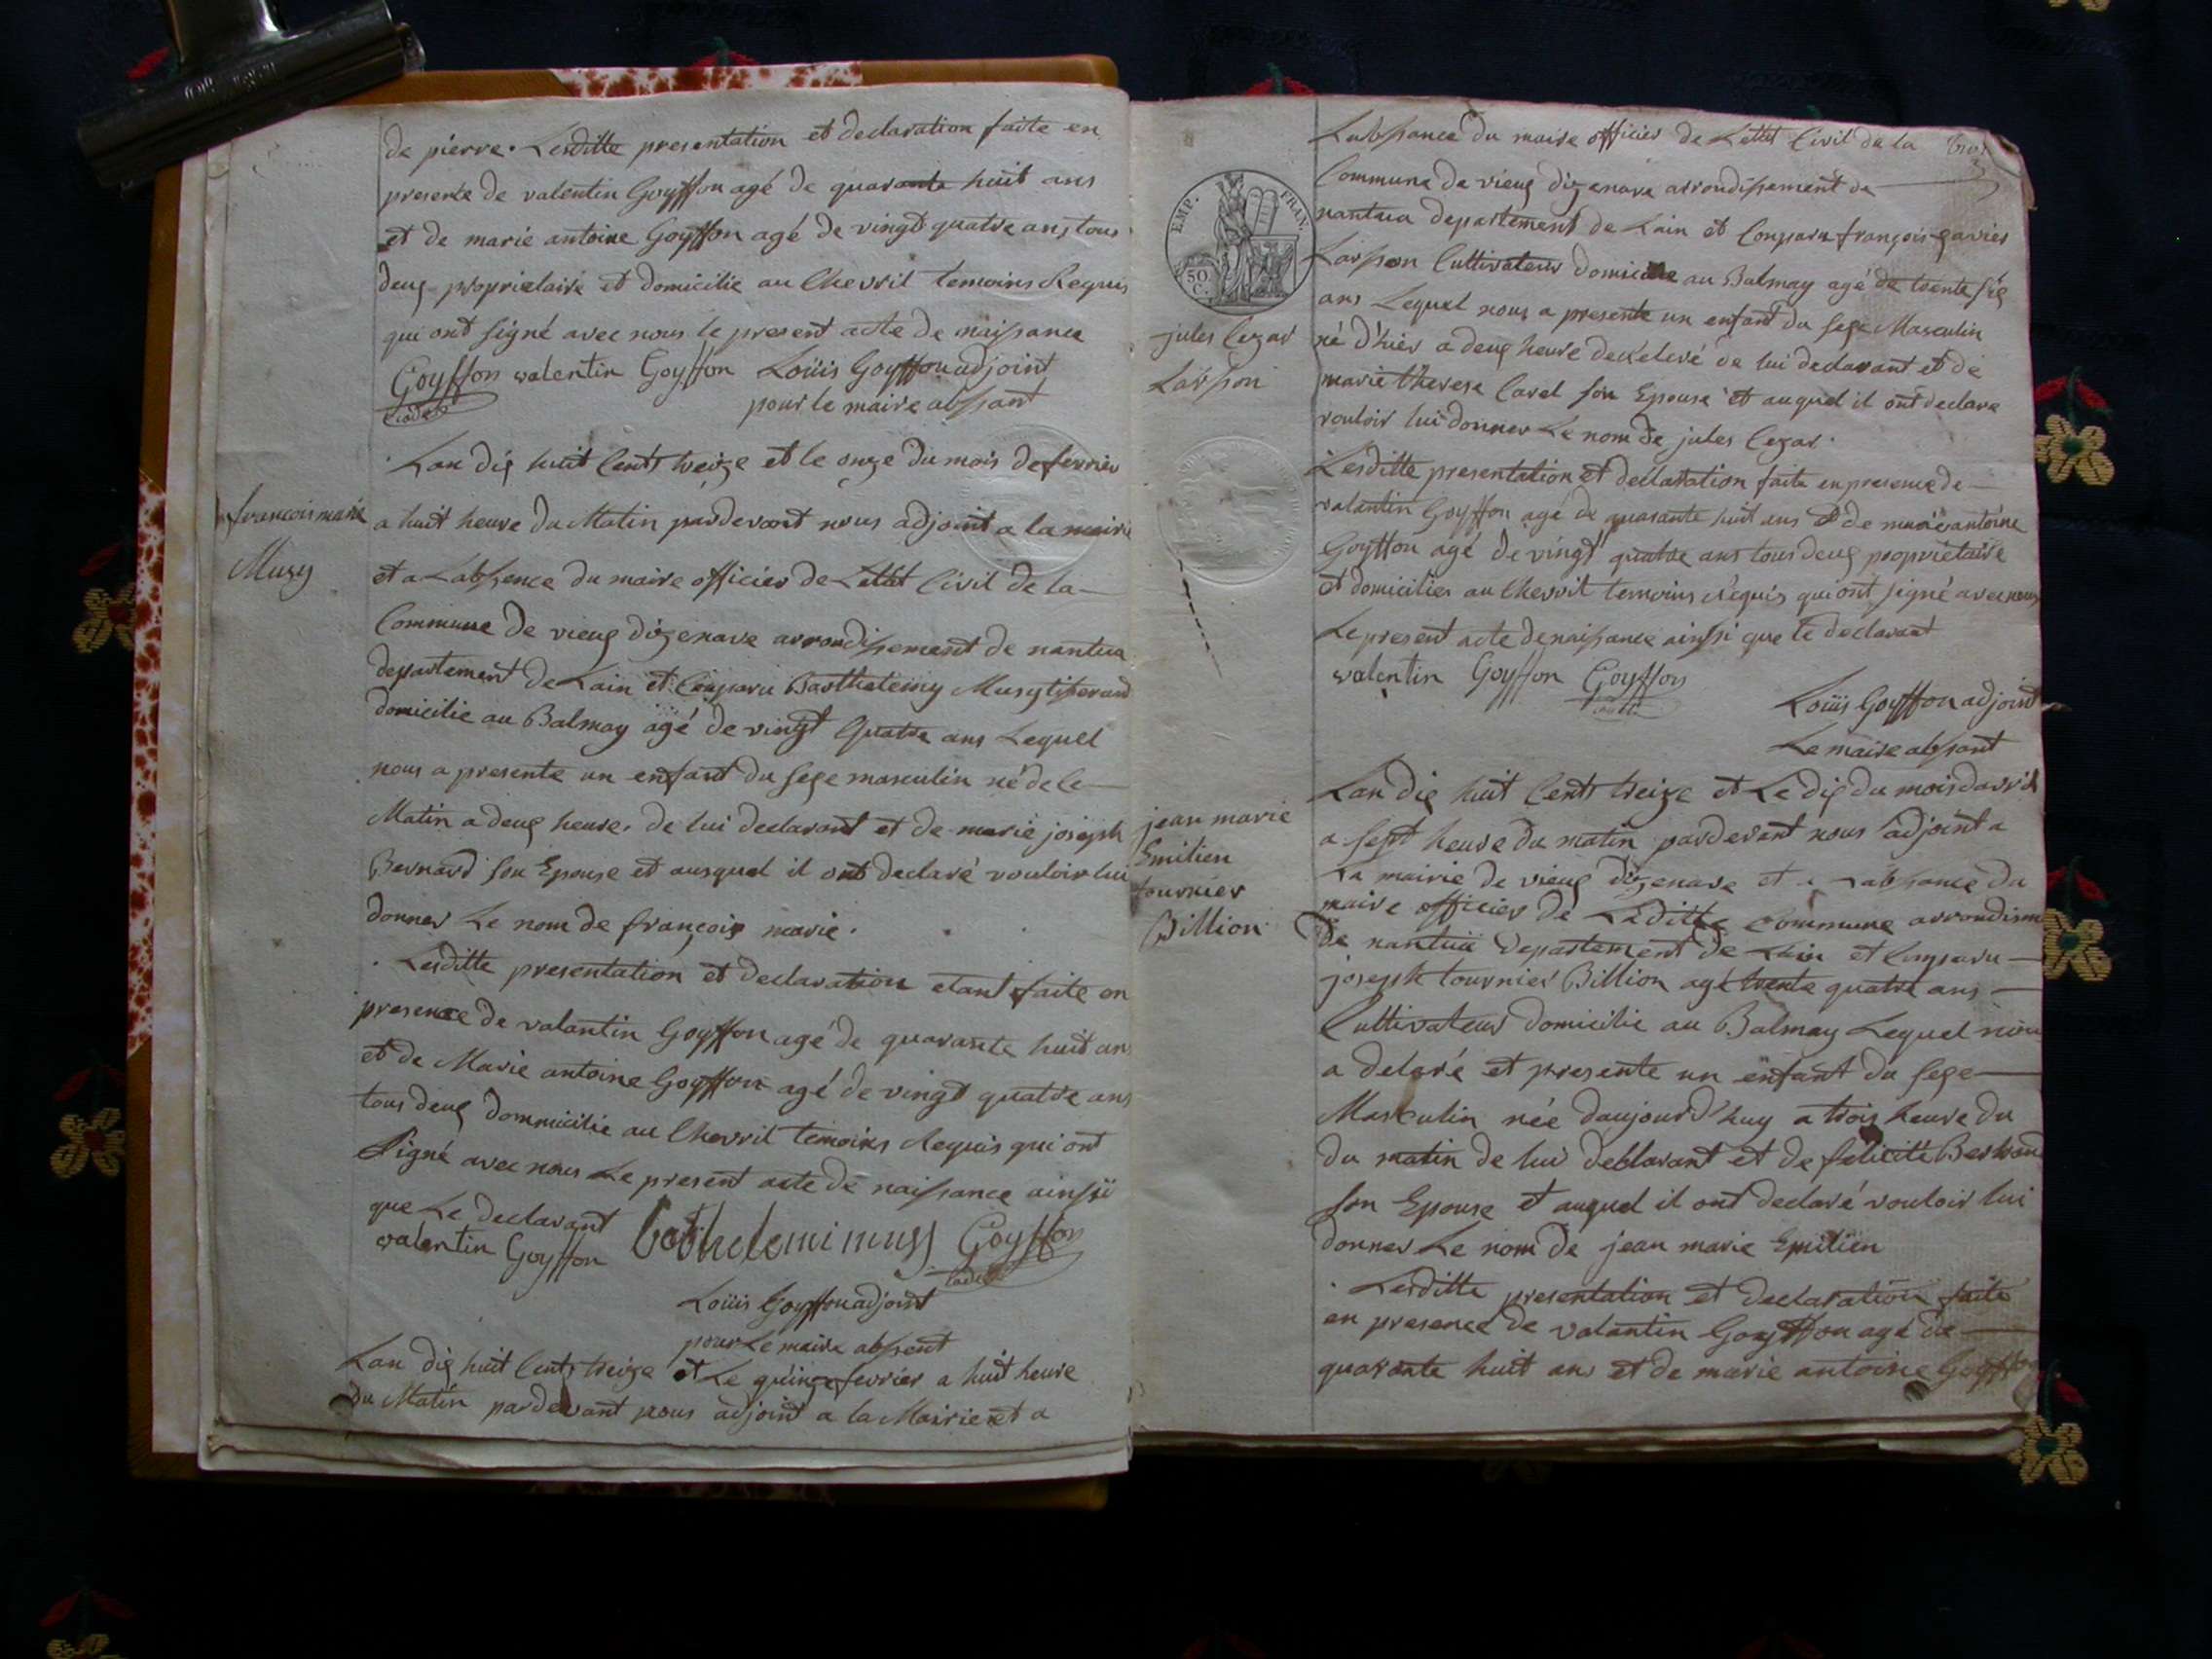 de pierre. Lesditte presentation et declaration faite en
presente de valentin Goyffon agé de quarante huit ans
et de marie antoine Goyffon agé de vingt quatre ans tous
deux proprietaire et domicilie au Chevril temoins Requis
qui ont signé avec nous le present acte de naissance
Goyffon valentin Goyffon Loüis Goyffon adjoint
cadet pour le maire absant
Lan dix huit Cents treize et le onze du mois de fevrier
francois marie
Musy
a huit heure du Matin pardevant nous adjoint a la mairie
et a Labssence du maire officier de Lettat Civil de la
Commune de vieux dizenave arrondissement de nantua
departement de Lain et Comparu Barthelemy Musy tiserand
domicilie au Balmay agé de vingt quatre ans Lequel
nous a presente un enfant du sexe masculin né de ce
Matin a deux heure. de lui declarant et de marie joseph
Bernard son Epouse et auxquel il ont declaré vouloir lui
donner Le nom de françois marie.
Lesditte presentation et declaration etant faite en
presence de valantin Goyffon agé de quarante huit ans
et de Marie antoine Goyffon agé de vingt quatre ans
tous deux dommicilie au Chevril temoins Requis qui ont
signé avec nous Le present acte de naissance ainssi
que Le declarant
valentin Goyffon bathelemi musy Goyffon
cadet
Loüis Goyffon adjoint
pour Le maire abssent
Lan dix huit Cents treize et Le quinze fevrier a huit heure
du Matin pardevant nous adjoint a la Mairie et a
Labssance du maire officier de Lettat Civil de la
Commune de vieux dizenave arrondissement de
EMP. FRAN.
50 C.
nantua departement de Lain et Comparu françois xavier
Larsson Cultivateur domicilie au Balmay agé de trente six
ans Lequel nous a presente un enfant du sexe Masculin
jules Cezar
Larsson
né d'hier a deux heure de Relevé de lui declarant et de
marie therese Carel son Epouse et auquel il ont declare
vouloir lui donner Le nom de jules Cezar.
Lesditte presentation et declaration faite en presence de
valantin Goyffon agé de quarante huit ans et de marie antoine
Goyffon agé de vingt quatre ans tous deux proprietaire
et domicilies au Chevril temoins Requis qui ont signé avec nous
Le present acte de naissance ainssi que le declarant
valentin Goyffon Goyffon
cadet
Loüis Goyffon adjoint
Le maire abssant
Lan dix huit Cents treize et Le dix du mois davril
jean marie
Emilien
tournier
Billion
a sept heure du matin pardevant nous adjoint a
La mairie de vieux dizenave et a Labssance du
maire officier de Laditte Commune arrondism
de nantua departement de Lain et Comparu
joseph tournier Billion agé trente quatre ans
Cultivateur domicilie au Balmay Lequel nous
a delaré et presente un enfant du sexe
Masculin née daujourd'huy a trois heure du
du matin de lui declarant et de felicité
son Epouse et auquel il ont declaré vouloir lui
donner Le nom de jean marie Emilien
Lesditte presentation et declaration faite
en presence de valantin Goyffon agé de
quarante huit ans et de marie antoine Goyffon